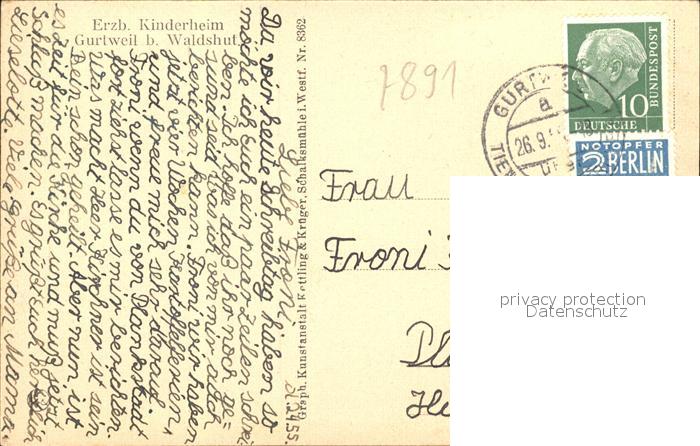 Erzb. Kinderheim
Gurtweil b. Waldshut
Graph. Kunstanstalt Kettling & Krüger, Schalksmühle i. Westf. Nr. 8362
7891
Liebe Froni
Da wir heute Schreibtag haben so
möchte ich Euch ein paar Zeilen schrei
ben. Ich hoffe daß ihr noch ge=
sund seid was ich von mir auch
berichten kann. Froni wir haben
jetzt vier Wochen Kartoffelferien,
und freue mich sehr darauf
Froni wenn du von Plankstadt
fort ziehst lasse es mir berichten.
Was macht Herr Kirchner ist sein
Bein schon geheilt. Aber nun ist
es Zeit für die Kirche und muß jetzt
Schluß machen. Es grüßt Euch herzlich
Lieselotte. Viele grüße an Mama
Frau
Froni
Pl
He
GURTW
a
26.9.
TIEN
10
DEUTSCHE
BUNDESPOST
NOTOPFER
2 BERLIN
privacy protection
Datenschutz